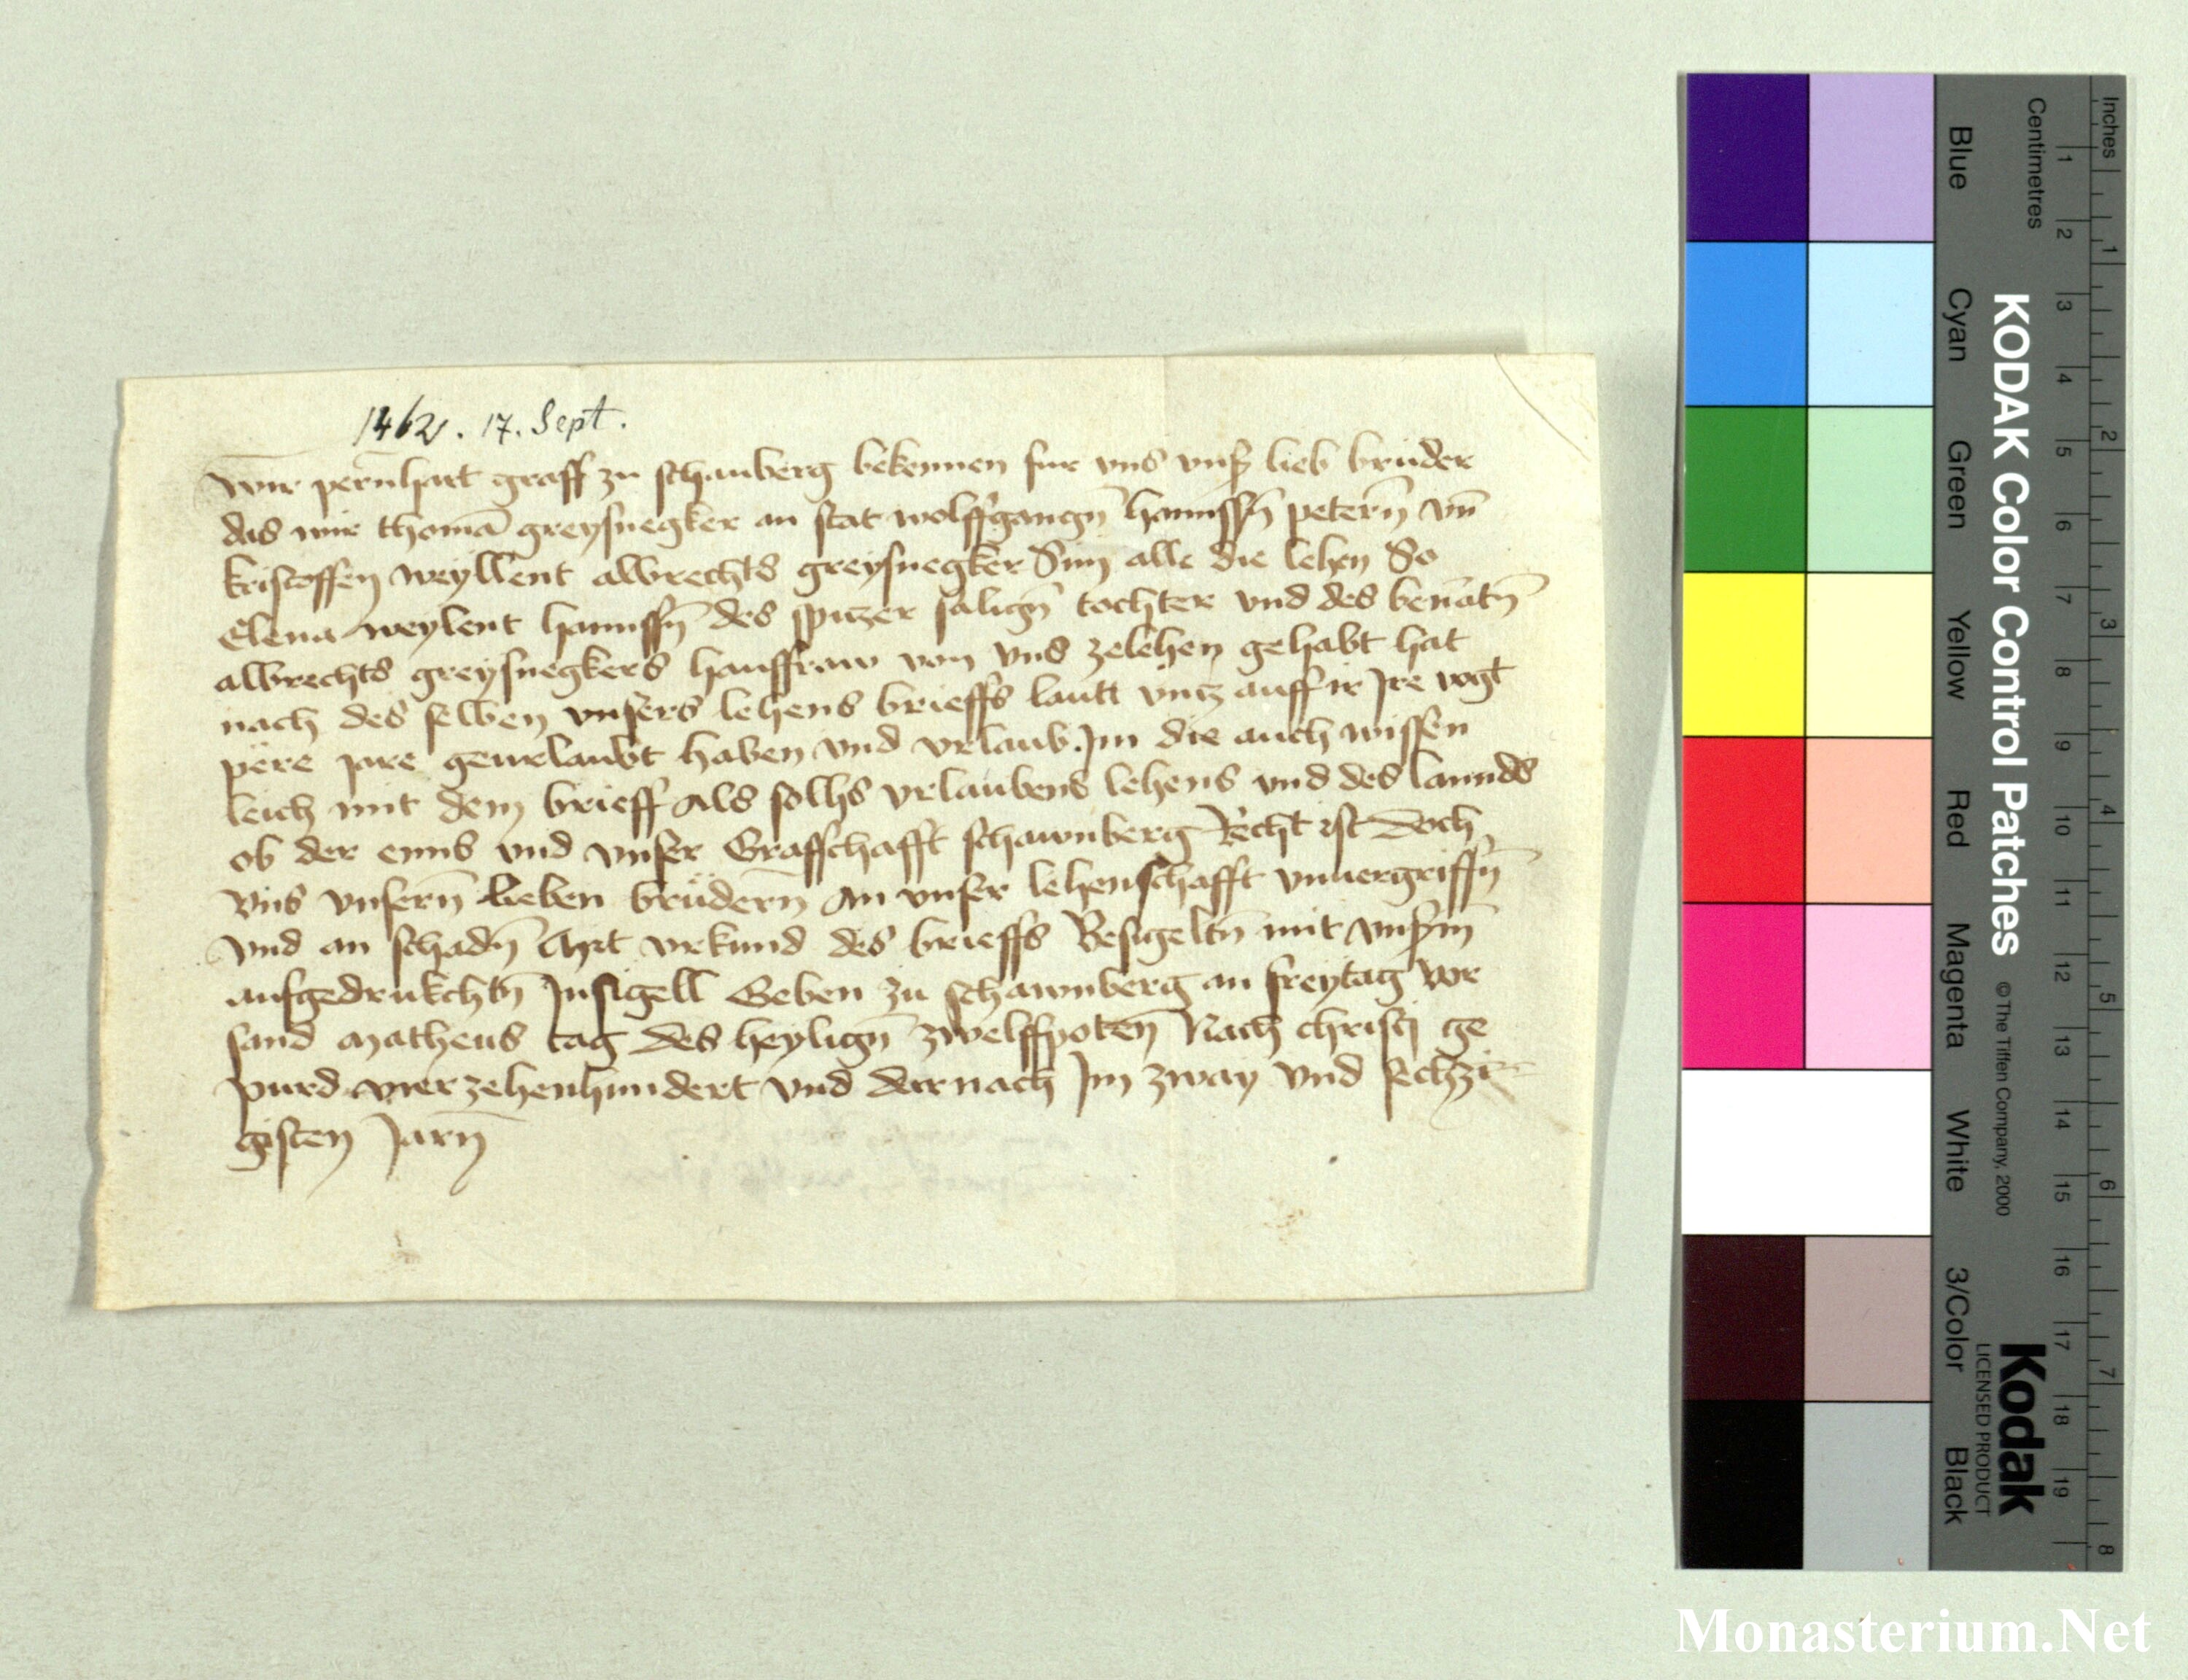 1462. 17. Sept.
Wir pernhart graff zu schaunberg bekennen fur vns vnß lieb brüder
das wir thoman̄ greysnegker an stat wolffgangn̄ hannssn̄ petern̄ vn̄
kristoffen weyllent albrechts greysnegker Sun alle die lehen So
Elena weylent hannssn̄ des spitzer salign̄ tochter vnd des benātn̄
albrechts greysnegkers hausfraw von vns zelehen gehabt hat
nach des selben vnsers lehens brieffs lautt vntz auff ir Jre vogt
pere jare geurlaubt haben vnd vrlaub Jm die auch wissen
leich mit dem brieff Als solhs vrlaubens lehens vnd des lannds
ob der enns vnd vnser Graffschafft schawnberg Recht ist Doch
vns vnsern̄ lieben brüdern̄ An vnser lehenschafft vnuergriffn̄
vnd an schadn̄ Mit vrkund des brieffs Besigeltn̄ mit vnßm̄
aufgedrukchtn̄ Jnsigell Geben zu schawnberg an freytag vor
sand Matheus tag des heylign̄ zwelffpoten̄ Nach christj ge
purd vierzehenhundert vnd darnach Jm zway vnd sechzi
gisten Jarn̄
Inches
Centimetres
1 2 3 4 5 6 7 8 9 10 11 12 13 14 15 16 17 18 19
1 2 3 4 5 6 7 8
KODAK Color Control Patches
© The Tiffen Company, 2000
Kodak
LICENSED PRODUCT
Blue
Cyan
Green
Yellow
Red
Magenta
White
3/Color
Black
Monasterium.Net